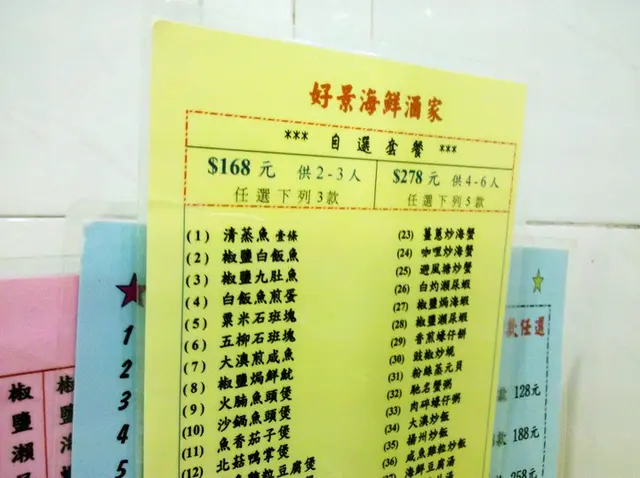 好景海鮮酒家
*** 自選套餐 ***
$168 元 供2-3人
任選下列3款
$278 元 供4-6人
任選下列5款
(1) 清蒸魚 壹條
(2) 椒鹽白飯魚
(3) 椒鹽九肚魚
(4) 白飯魚煎蛋
(5) 粟米石班塊
(6) 五柳石班塊
(7) 大澳煎咸魚
(8) 椒鹽焗鮮魷
(9) 火腩魚頭煲
(10) 沙鍋魚頭煲
(11) 魚香茄子煲
(12) 北菇鴨掌煲
豆腐煲
(23) 薑蔥炒海蟹
(24) 咖哩炒海蟹
(25) 避風塘炒蟹
(26) 白灼瀨尿蝦
(27) 椒鹽焗海蝦
(28) 椒鹽瀨尿蝦
(29) 香煎蠔仔餅
(30) 豉椒炒蜆
(31) 粉絲蒸元貝
(32) 馳名蟹粥
(33) 肉碎蠔仔粥
(34) 大澳炒飯
(35) 揚州炒飯
(36) 咸魚雞粒炒飯
(37) 海鮮豆腐湯
1
2
3
4
5
椒鹽瀨
椒鹽海
款任選
款 128元
款 188元
258元